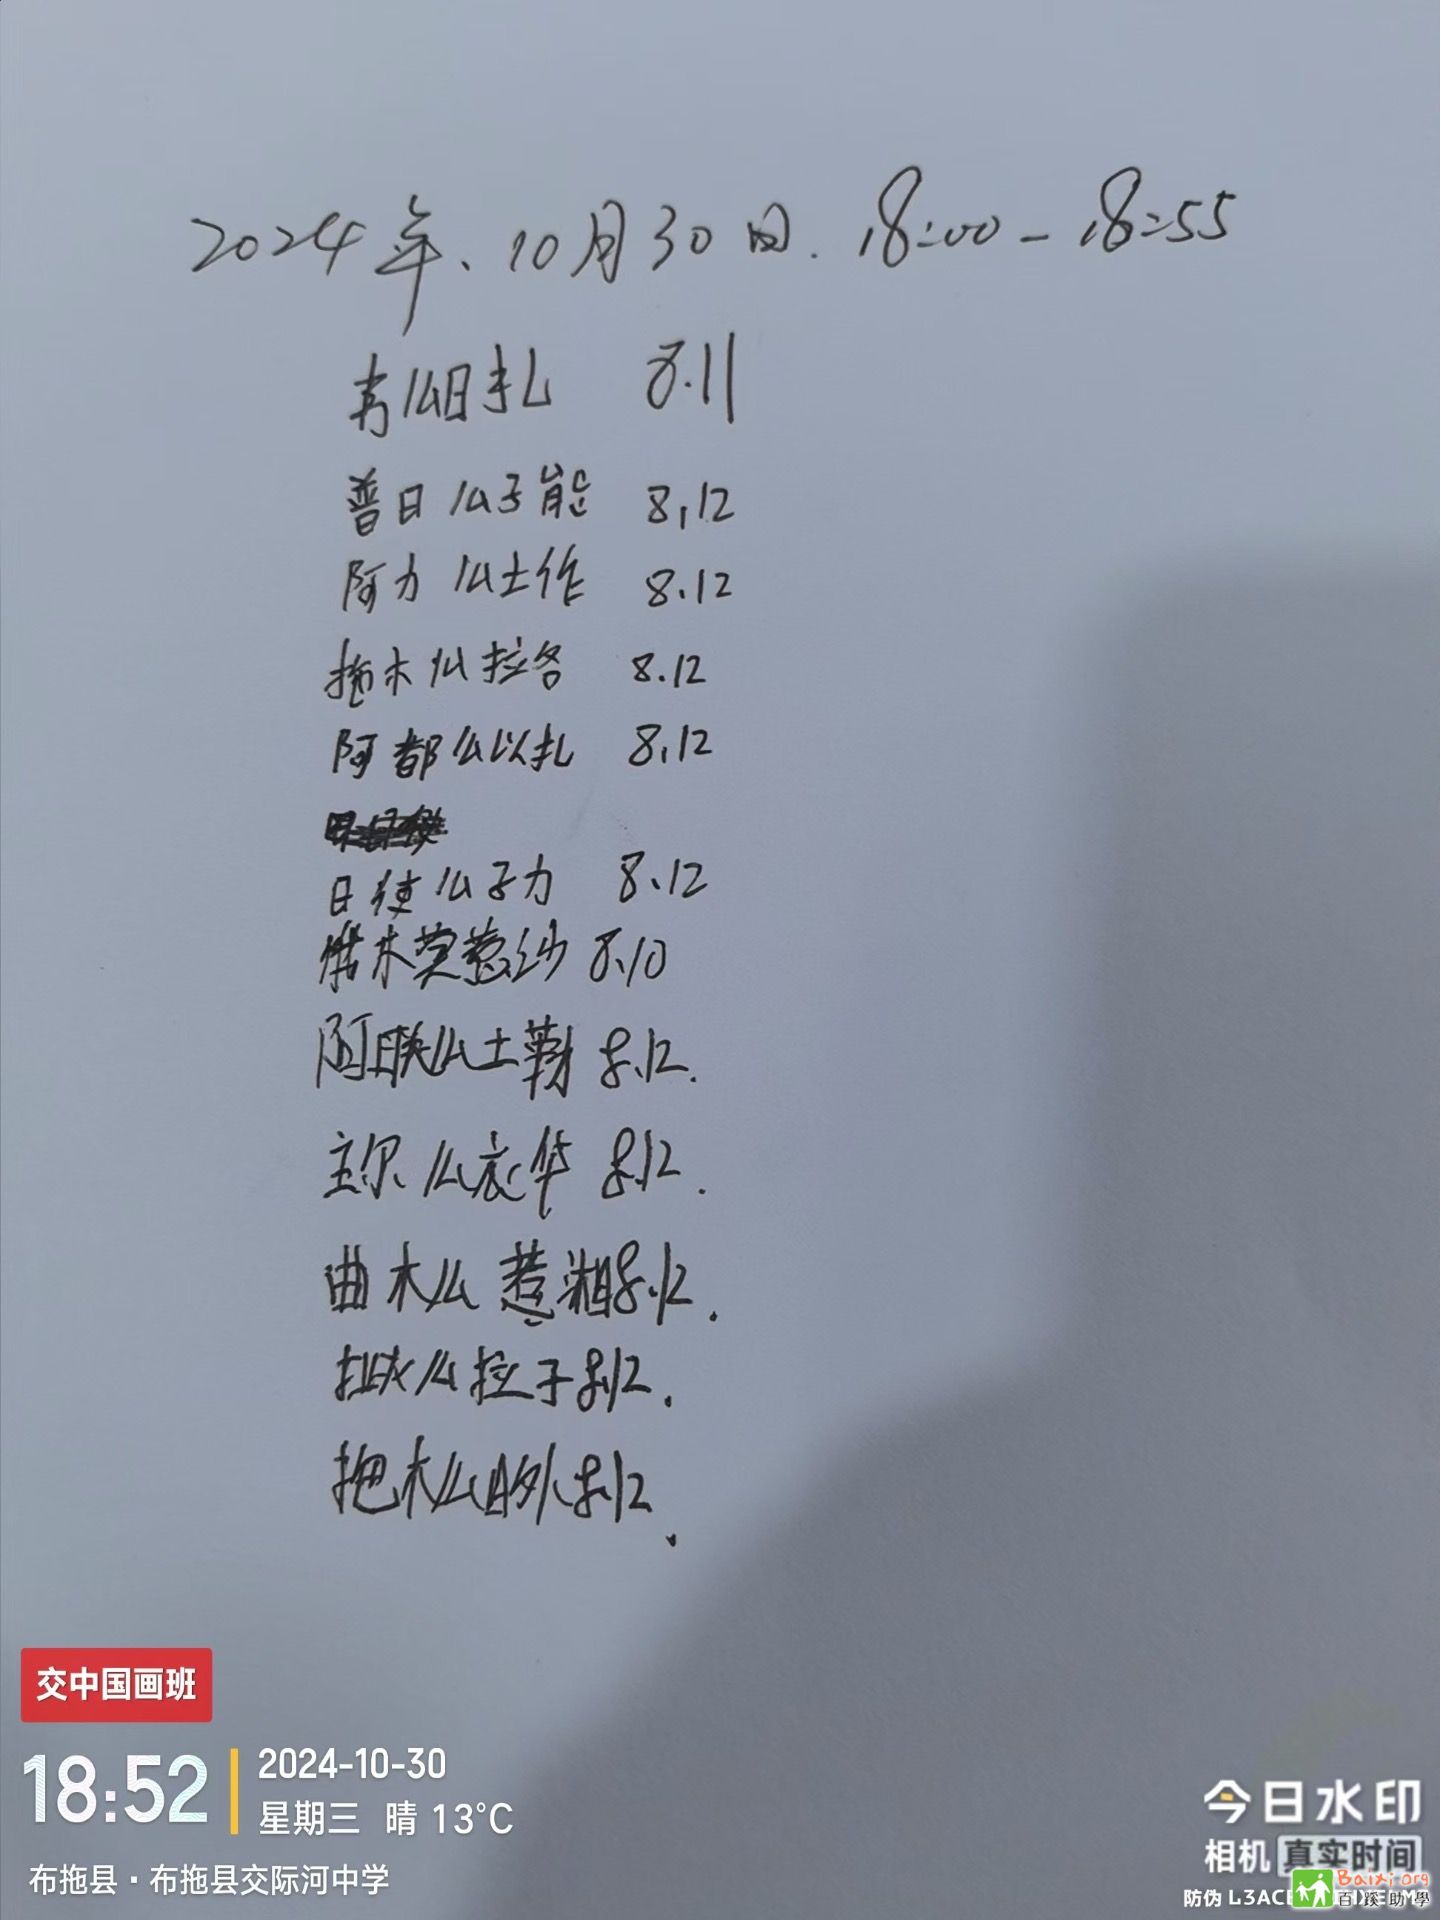 2024年、10月30日. 18:00-18:55
么日扎 8.11
普日么子能 8.12
阿力么土作 8.12
拖木么拉各 8.12
阿都么以扎 8.12
日使么子力 8.12
木莫惹沙 8.10
么土勒 8.12.
主尔么衣华 8.12.
曲木么惹湘 8.12.
么拉子 8.12.
木么 8.12.
交中国画班
18:52
2024-10-30
星期三 晴 13°C
布拖县·布拖县交际河中学
今日水印
相机 真实时间
防伪 L3ACE
Baixi.org
百蹊助學